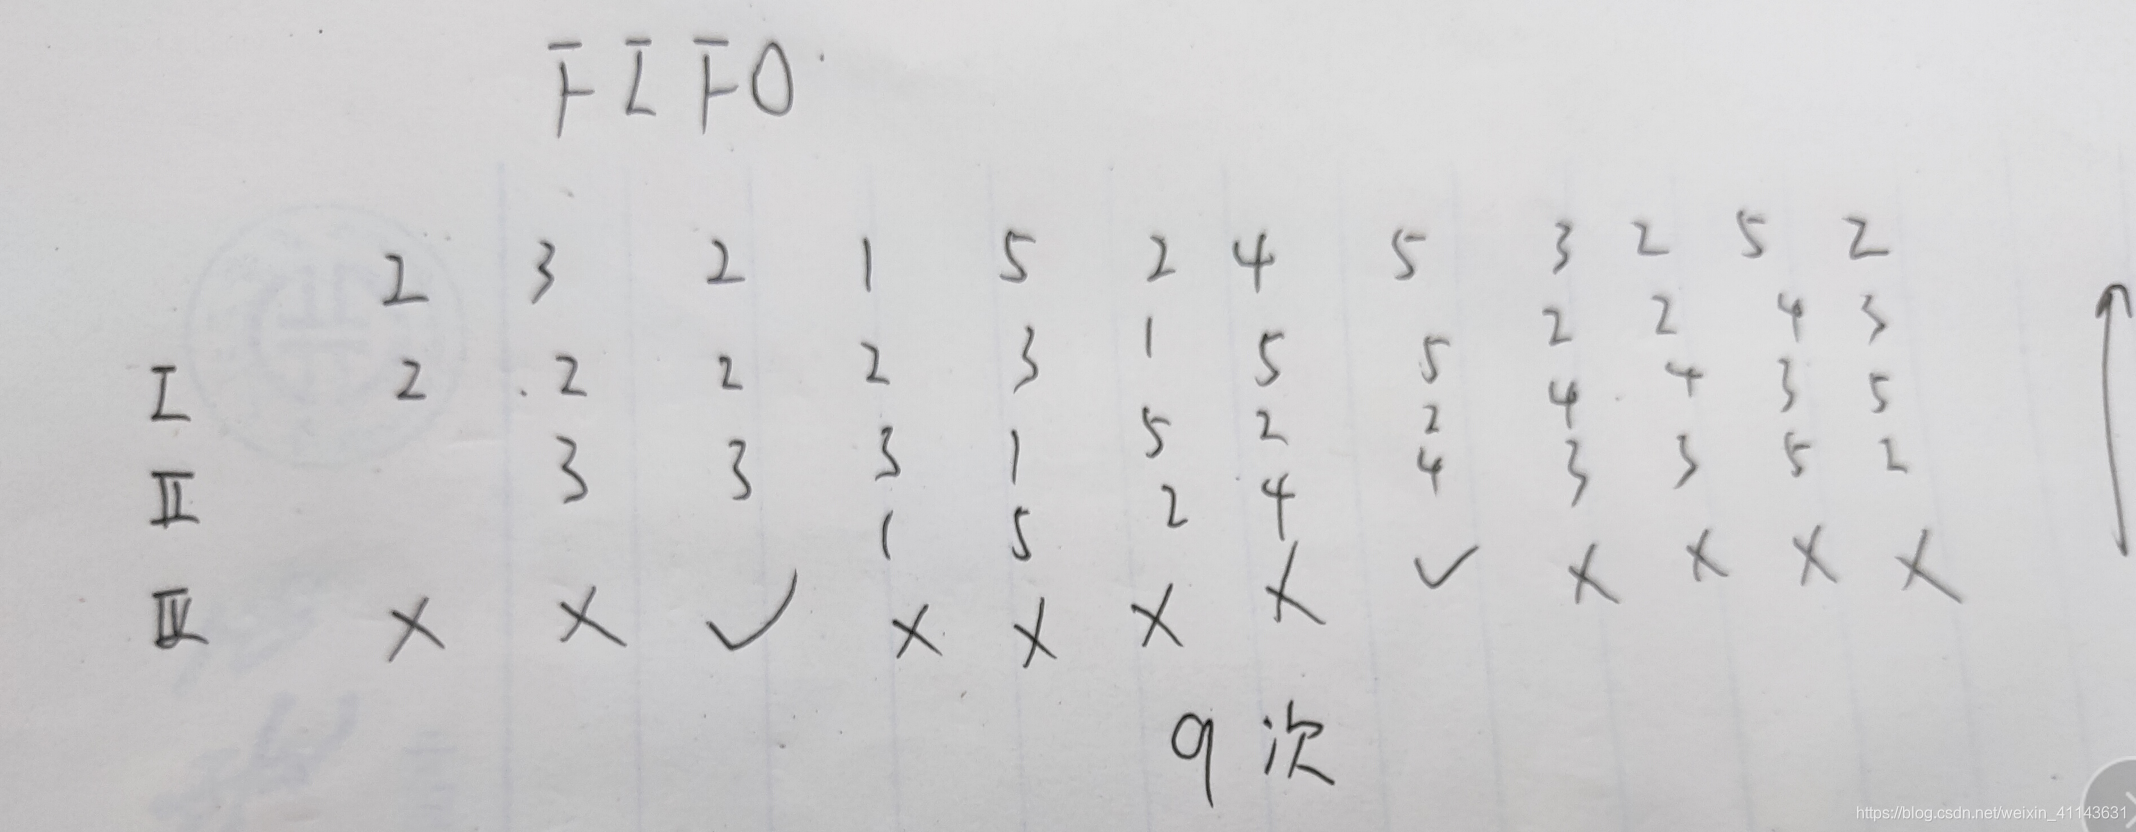 FIFO
2 3 2 1 5 2 4 5 3 2 5 2
I 2 2 2 2 3 1 5 5 2 2 4 3
II 3 3 3 1 5 2 2 4 4 3 5
III 1 5 2 4 4 3 3 5 2
X X ✓ X X X X ✓ X X X X
9次
https://blog.csdn.net/weixin_41143631